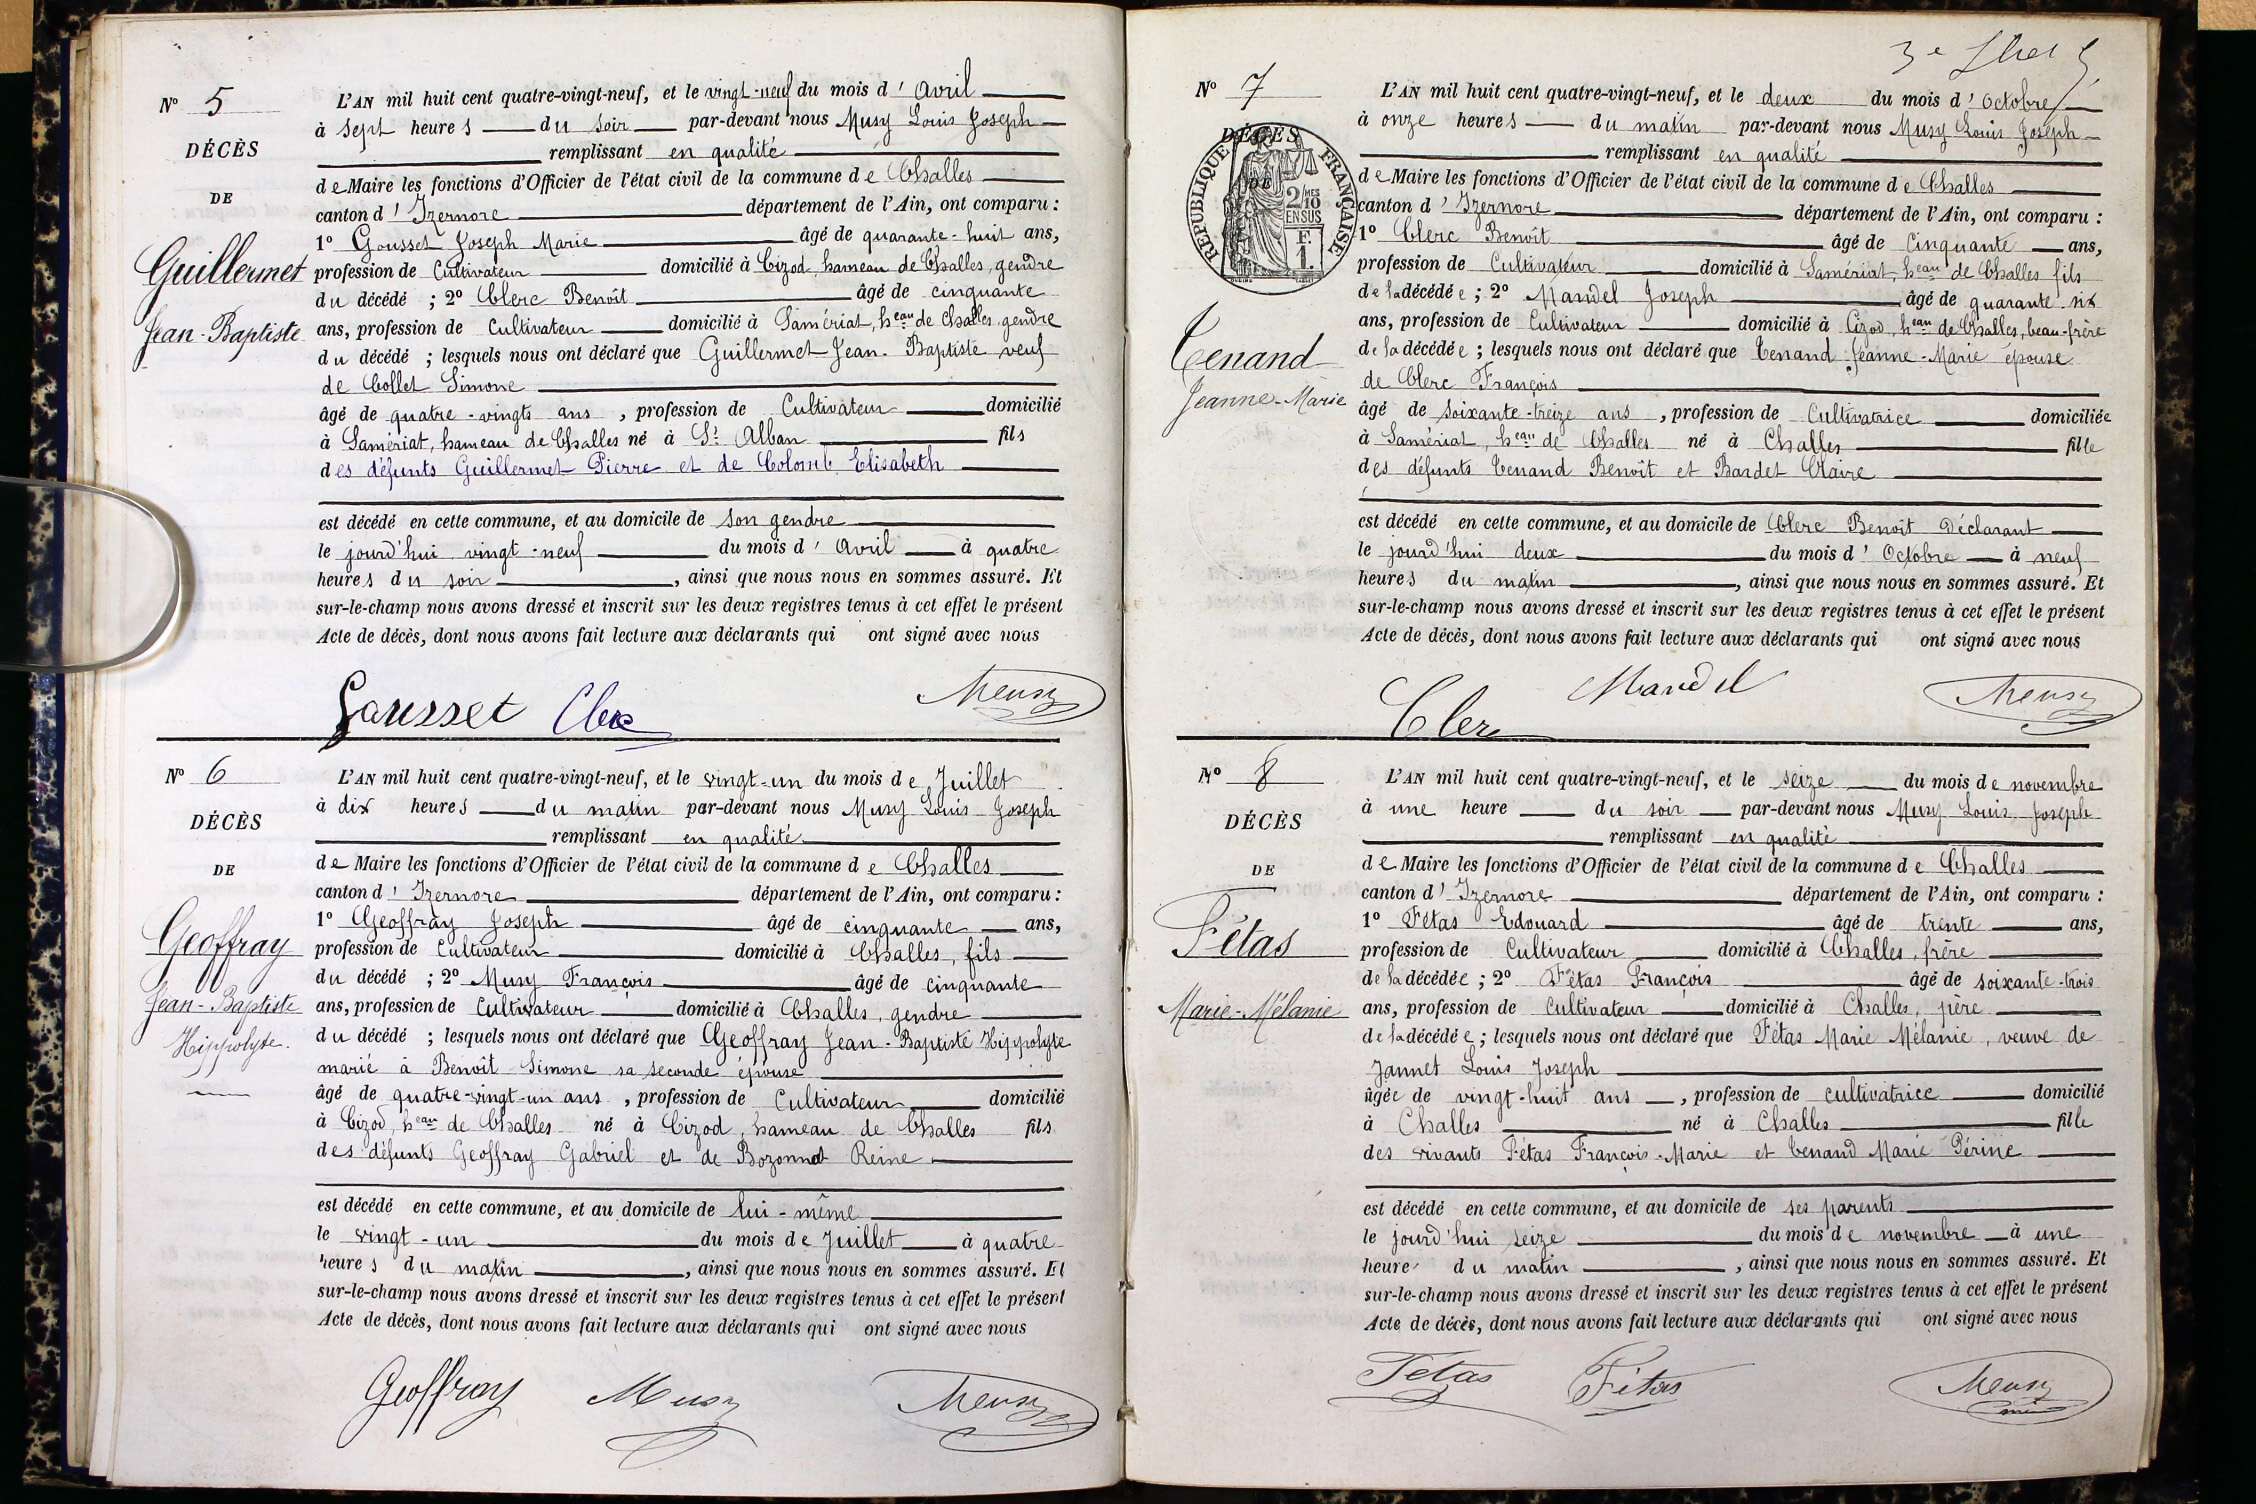 Nº 5
DÉCÈS
DE
Guillermet
Jean-Baptiste
L'AN mil huit cent quatre-vingt-neuf, et le vingt-neuf du mois d' Avril
à sept heures du soir par-devant nous Musy Louis Joseph
remplissant en qualité
de Maire les fonctions d'Officier de l'état civil de la commune de Challes
canton d' Izernore département de l'Ain, ont comparu :
1º Gousset Joseph Marie âgé de quarante-huit ans,
profession de Cultivateur domicilié à Cizod hameau de Challes, gendre
du décédé ; 2º Clerc Benoît âgé de cinquante
ans, profession de Cultivateur domicilié à Samériat, heau de Challes, gendre
du décédé ; lesquels nous ont déclaré que Guillermet Jean-Baptiste veuf
de Collet Simone
âgé de quatre-vingts ans, profession de Cultivateur domicilié
à Samériat, hameau de Challes né à St Alban fils
des défunts Guillermet Pierre et de Colomb Elisabeth
est décédé en cette commune, et au domicile de son gendre
le jourd'hui vingt-neuf du mois d' Avril à quatre
heures du soir, ainsi que nous nous en sommes assuré. Et
sur-le-champ nous avons dressé et inscrit sur les deux registres tenus à cet effet le présent
Acte de décès, dont nous avons fait lecture aux déclarants qui ont signé avec nous
Gousset Clerc Musy
Nº 6
DÉCÈS
DE
Geoffray
Jean-Baptiste
Hippolyte.
L'AN mil huit cent quatre-vingt-neuf, et le vingt-un du mois de Juillet
à dix heures du matin par-devant nous Musy Louis Joseph
remplissant en qualité
de Maire les fonctions d'Officier de l'état civil de la commune de Challes
canton d' Izernore département de l'Ain, ont comparu :
1º Geoffray Joseph âgé de cinquante ans,
profession de Cultivateur domicilié à Challes, fils
du décédé ; 2º Musy François âgé de cinquante
ans, profession de Cultivateur domicilié à Challes, gendre
du décédé ; lesquels nous ont déclaré que Geoffray Jean-Baptiste Hippolyte
marié à Benoît Simone sa seconde épouse
âgé de quatre-vingt-un ans, profession de Cultivateur domicilié
à Cizod, heau de Challes né à Cizod, hameau de Challes fils
des défunts Geoffray Gabriel et de Bozonnat Reine
est décédé en cette commune, et au domicile de lui-même
le vingt-un du mois de Juillet à quatre
heures du matin, ainsi que nous nous en sommes assuré. Et
sur-le-champ nous avons dressé et inscrit sur les deux registres tenus à cet effet le présent
Acte de décès, dont nous avons fait lecture aux déclarants qui ont signé avec nous
Geoffray Musy Musy
3e
Nº 7
DÉCES
DE
REPUBLIQUE FRANÇAISE
2/10 EN SUS
F. 1.
Tenand
Jeanne-Marie
L'AN mil huit cent quatre-vingt-neuf, et le deux du mois d' Octobre
à onze heures du matin par-devant nous Musy Louis Joseph
remplissant en qualité
de Maire les fonctions d'Officier de l'état civil de la commune de Challes
canton d' Izernore département de l'Ain, ont comparu :
1º Clerc Benoît âgé de Cinquante ans,
profession de Cultivateur domicilié à Samériat, heau de Challes fils
de la décédée ; 2º Mandel Joseph âgé de quarante six
ans, profession de Cultivateur domicilié à Cizod, heau de Challes, beau-frère
de la décédée ; lesquels nous ont déclaré que Tenand Jeanne-Marie épouse
de Clerc François
âgé de soixante-treize ans, profession de Cultivatrice domiciliée
à Samériat, heau de Challes né à Challes fille
des défunts Tenand Benoît et Bardet Claire
est décédé en cette commune, et au domicile de Clerc Benoît Déclarant
le jourd'hui deux du mois d' Octobre à neuf
heures du matin, ainsi que nous nous en sommes assuré. Et
sur-le-champ nous avons dressé et inscrit sur les deux registres tenus à cet effet le présent
Acte de décès, dont nous avons fait lecture aux déclarants qui ont signé avec nous
Clerc Mandel Musy
Nº 8
DÉCÈS
DE
Fétas
Marie-Mélanie
L'AN mil huit cent quatre-vingt-neuf, et le seize du mois de novembre
à une heure du soir par-devant nous Musy Louis Joseph
remplissant en qualité
de Maire les fonctions d'Officier de l'état civil de la commune de Challes
canton d' Izernore département de l'Ain, ont comparu :
1º Fétas Edouard âgé de trente ans,
profession de Cultivateur domicilié à Challes, frère
de la décédée ; 2º Fétas François âgé de soixante-trois
ans, profession de Cultivateur domicilié à Challes, père
de la décédée ; lesquels nous ont déclaré que Fétas Marie Mélanie, veuve de
Jannet Louis Joseph
âgée de vingt-huit ans, profession de cultivatrice domicilié
à Challes né à Challes fille
des vivants Fétas François-Marie et Tenand Marie Périne
est décédé en cette commune, et au domicile de ses parents
le jourd'hui seize du mois de novembre à une
heure du matin, ainsi que nous nous en sommes assuré. Et
sur-le-champ nous avons dressé et inscrit sur les deux registres tenus à cet effet le présent
Acte de décès, dont nous avons fait lecture aux déclarants qui ont signé avec nous
Fétas Fétas Musy